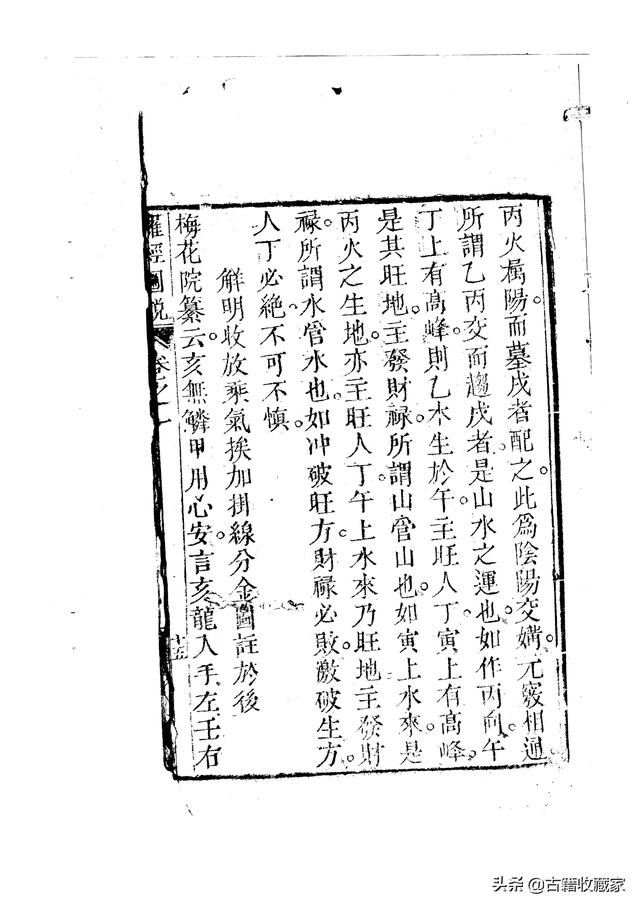 丙火属陽。而墓戌者配之。此爲陰陽交媾。元竅相通。
所謂乙丙交而趨戌者。是山水之運也。如作丙向。午
丁上有高峰。則乙木生於午。主旺人丁。寅上有高峰。
是其旺地。主發財祿。所謂山管山也。如寅上水來。是
丙火之生地。亦主旺人丁。午上水來。乃旺地。主發財
祿。所謂水管水也。如冲破旺方。財祿必敗。激破生方。
人丁必絶。不可不慎。
解明收放乘氣挨加掛線分金圖註於後
梅花院纂云。亥無鱗甲用心安。言亥龍入手。左壬右
羅經圖說
卷之一
十五
头条 @古籍收藏家